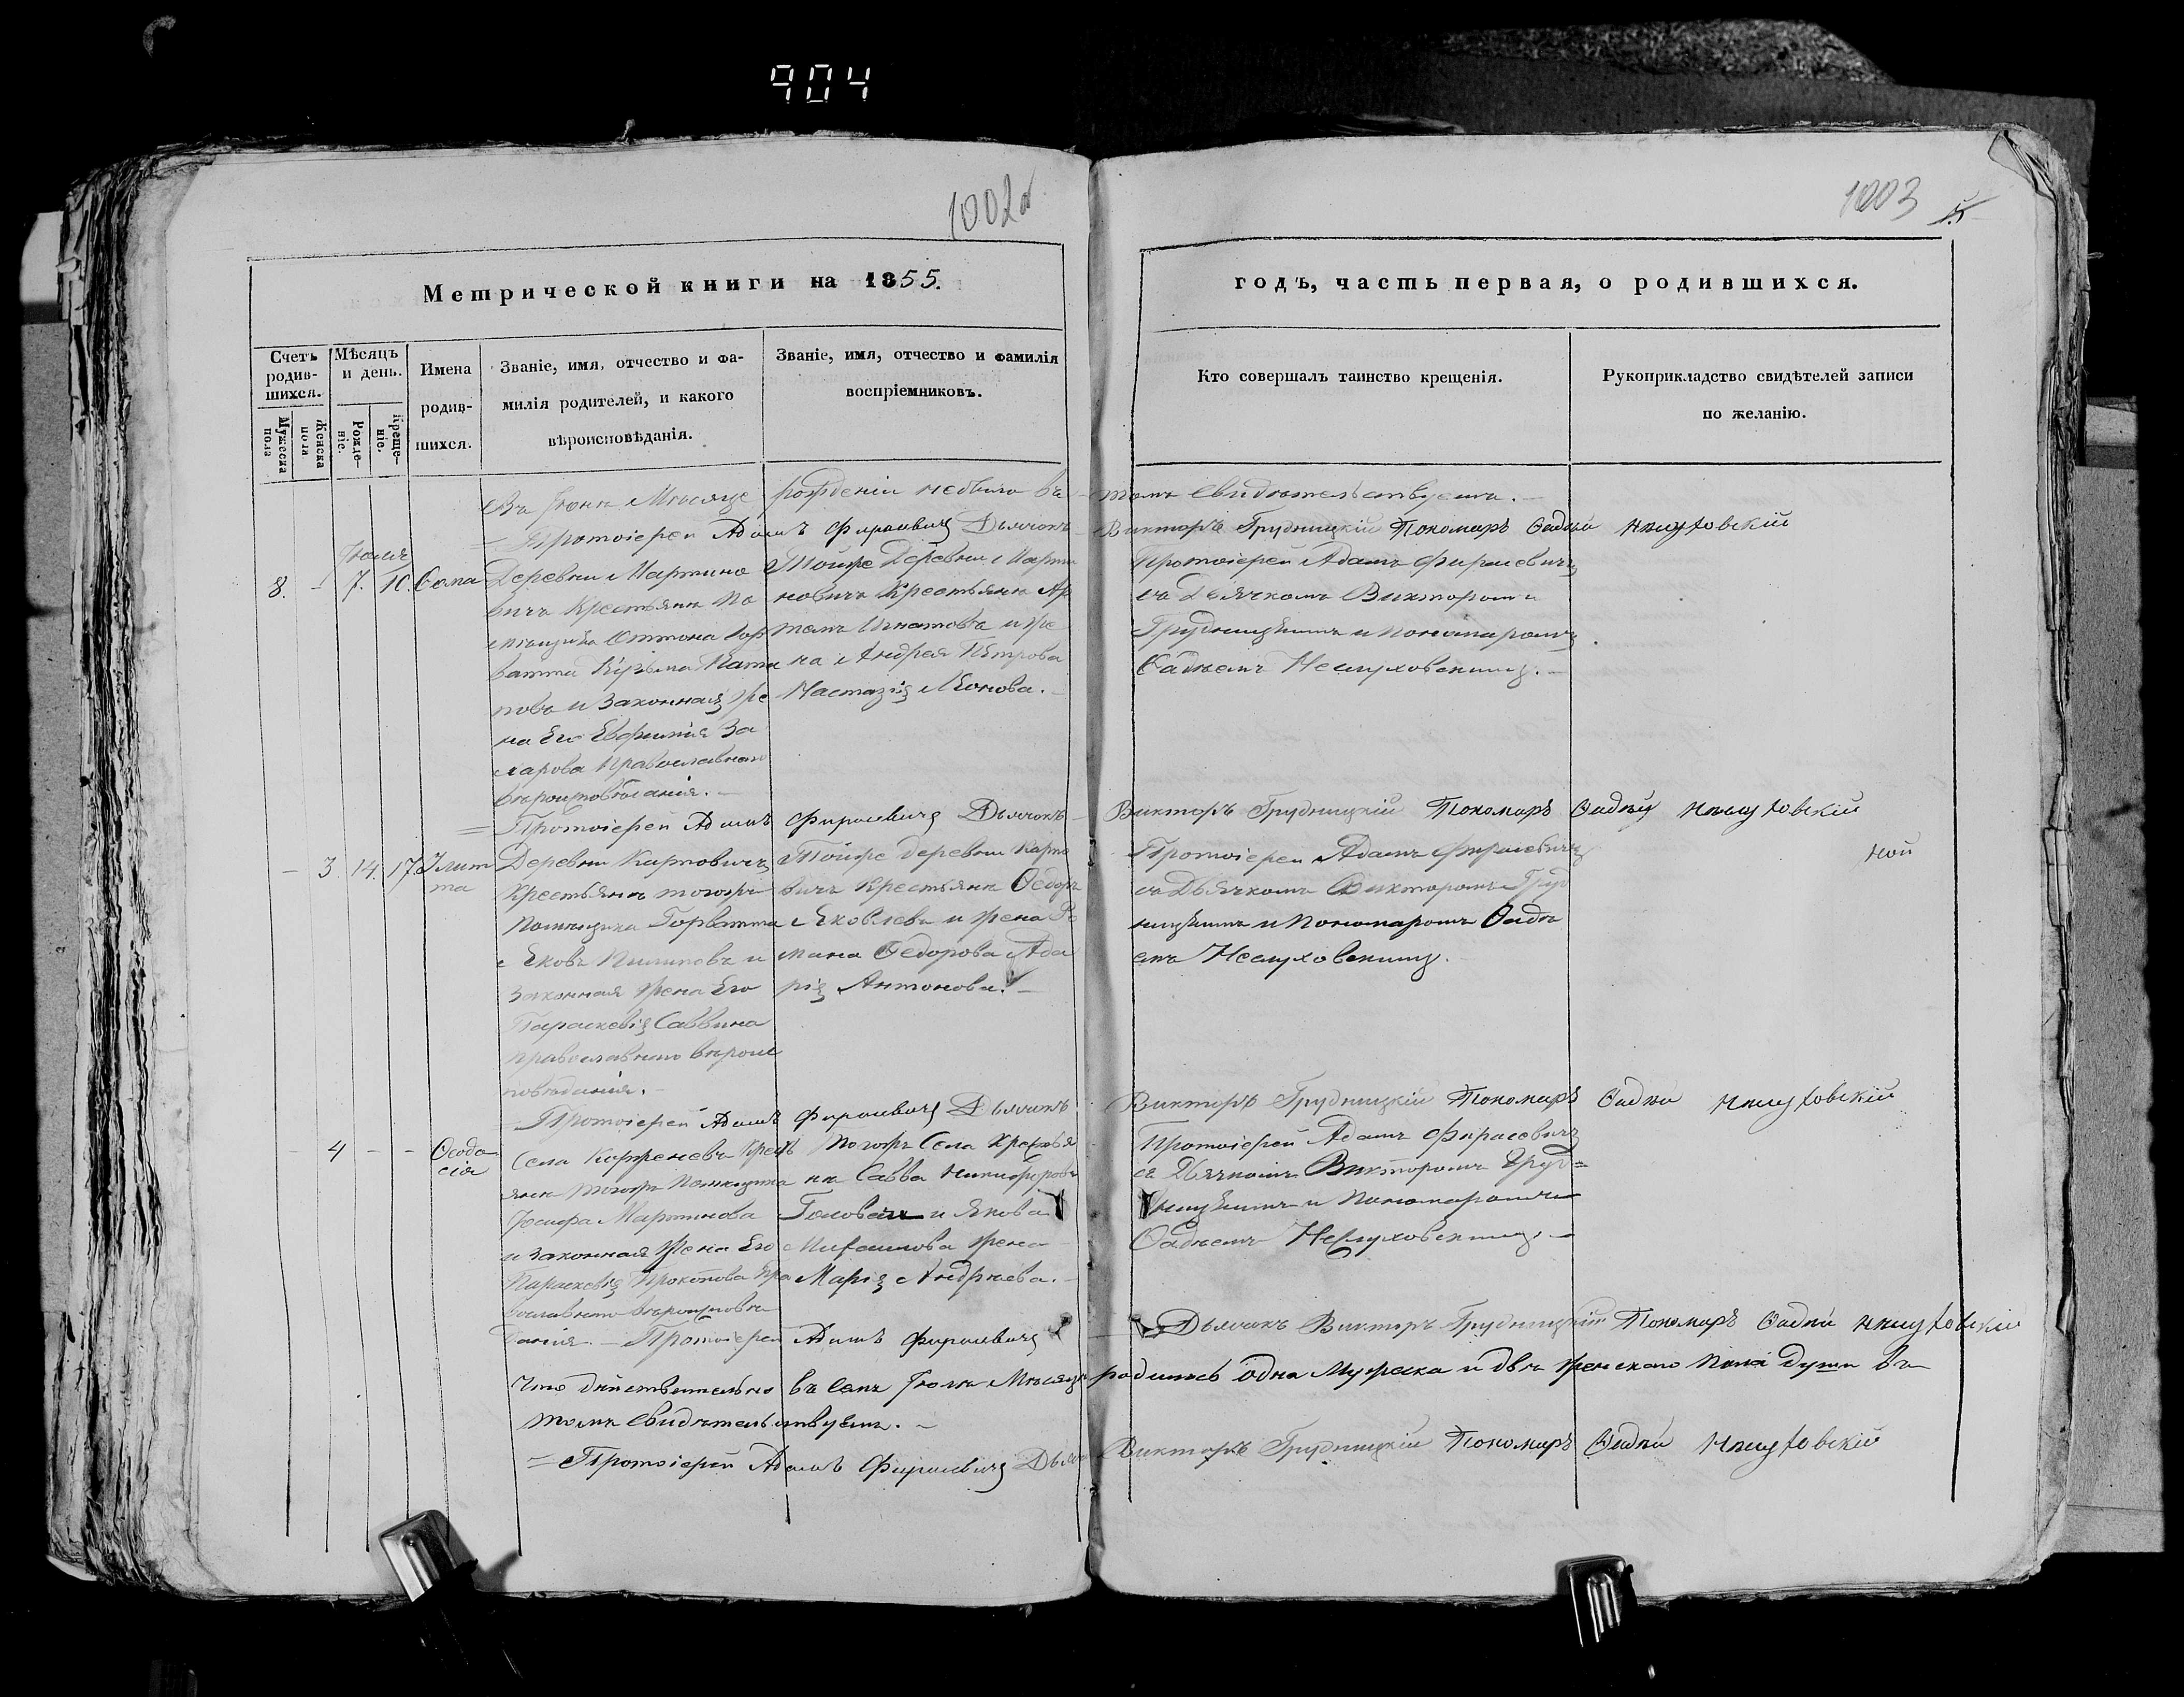 904
1002
1003
Метрической книги на 1855.
годъ, часть первая, о родившихся.
Счетъ родив-шихся.
Мужеска пола
Женска пола
Мѣсяцъ и день.
Рожде-ніе.
Креще-ніе.
Имена родив-шихся.
Званіе, имя, отчество и фа-
милія родителей, и какого
вѣроисповѣданія.
Званіе, имя, отчество и фамилія
воспріемниковъ.
Кто совершалъ таинство крещенія.
Рукоприкладство свидѣтелей записи
по желанію.
Въ Іюнѣ Мѣсяце рожденіи небыло въ томъ свидѣтельствуемъ.
Протоіерей Адамъ Фирасевичъ Дьячокъ Викторъ Грудницкій Пономаръ Фадѣй
Іюля
8. - 7. 10. Фома
Деревни Мартино
вичъ Крестьянъ По
мѣщика Оттона Гор
ватта
и законная же
на Его Евфимія За
харова Православнаго
вѣроисповѣданія.
Тойже Деревни Марти
новичъ Крестьянъ Ар
темъ Игнатовъ и же
на Андрея Петрова
Настазія
Протоіерей Адамъ Фирасевичъ
съ Дьячкомъ Викторомъ
Грудницкимъ и Пономаромъ
Фадѣемъ Неслуховскимъ.
Протоіерей Адамъ Фирасевичъ Дьячокъ Викторъ Грудницкій Пономаръ Фадѣй
- 3. 14. 17.
Деревни Карповичъ
Крестьянъ тогожъ
Помѣщика Горватта
Яковъ Пилиповъ и
законная жена Его
Параскевія Саввина
православнаго вѣроис
повѣданія.
Тойже деревни Карпо
вичъ Крестьянъ Ѳедоръ
Яковлевъ и жена Ро
мана Ѳедорова Ада
рія Антонова.
Протоіерей Адамъ Фирасевичъ
съ Дьячкомъ Викторомъ Груд
ницкимъ и Пономаромъ Фадѣ
емъ Неслуховскимъ.
ной
Протоіерей Адамъ Фирасевичъ Дьячокъ Викторъ Грудницкій Пономаръ Фадѣй
- 4 - - Ѳеодо-
сія
Села Корженевъ Кресть
янъ тогожъ Помѣщика
Іосифа Мартинова
и законная жена Его
Параскевія Прокопова Пра
вославнаго вѣроисповѣ
данія.
тогожъ Села Крестья
нъ Савва Никифоровъ
Головачъ и Якова
Михаилова жена
Марія Андрѣева.
Протоіерей Адамъ Фирасевичъ
съ Дьячкомъ Викторомъ Груд=
ницкимъ и Пономаромъ
Фадѣемъ Неслуховскимъ.
Протоіерей Адамъ Фирасевичъ Дьячокъ Викторъ Грудницкій Пономаръ Фадѣй
Что дѣйствительно въ семъ Іюлѣ Мѣсяцѣ родились одна Мужеска и двѣ женскаго пола души въ
томъ свидѣтельствуемъ.
Протоіерей Адамъ Фирасевичъ Дьячокъ Викторъ Грудницкій Пономаръ Фадѣй